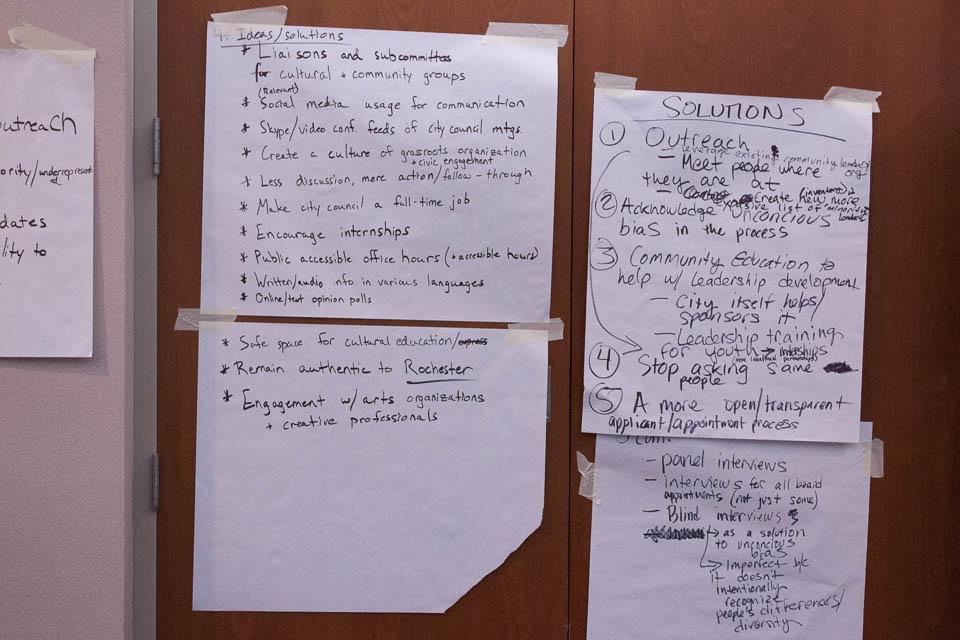 outreach
ority/underrepresent
dates
lity to
4. Ideas/solutions
* Liaisons and subcommittees
for cultural + community groups
(Relevant)
* Social media usage for communication
* Skype/video conf. feeds of city council mtgs.
* Create a culture of grassroots organization
+ civic engagement
* Less discussion, more action/follow-through
* Make city council a full-time job
* Encourage internships
* Public accessible office hours (+ accessible hours)
* Written/audio info in various languages
* Online/text opinion polls
* Safe space for cultural education/
* Remain authentic to Rochester
* Engagement w/ arts organizations
+ creative professionals
SOLUTIONS
① Outreach
leverage existing community leaders/
org
- Meet people where
they are at
- Create new more
(inventory)
expansive list of minority
leaders
② Acknowledge unconcious
bias in the process
③ Community Education to
help w/ Leadership development
- City itself helps/
sponsors it
- Leadership training
for youth → intnships
④ Stop asking same
people
⑤ A more open/transparent
applicant/appointment process
5 cont.
- panel interviews
- interviews for all board
appointments (not just some)
- Blind interviews
→ as a solution
to unconcious
bias
→ Imperfect b/c
it doesn't
intentionally
recognize
people's differences/
diversity